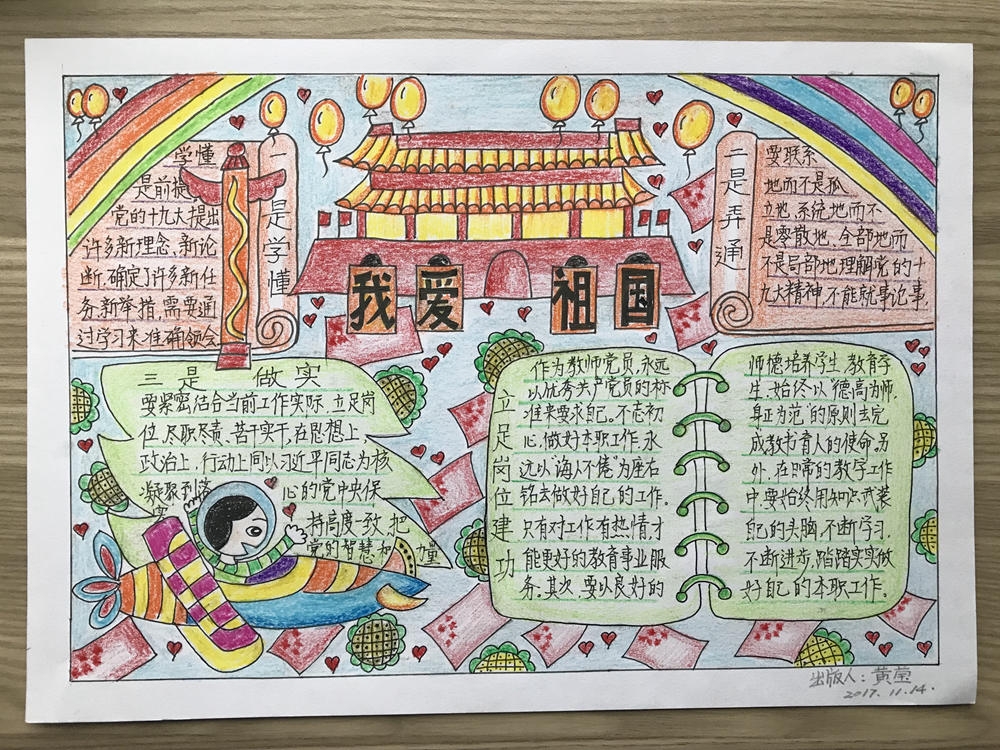 我爱祖国
一是学懂
学懂
是前提,
党的十九大提出
许多新理念、新论
断、确定了许多新任
务、新举措,需要通
过学习来准确领会.
二是弄通
要联系
地而不是孤
立地、系统地而不
是零散地、全部地而
不是局部地理解党的十
九大精神,不能就事论事.
三是 做实
要紧密结合当前工作实际,立足岗
位,尽职尽责、苦干实干,在思想上、
政治上、行动上同以习近平同志为核
心的党中央保
持高度一致,把
党的智慧和 力量
凝聚到落
实
立足岗位建功
作为教师党员,永远
以优秀共产党员的标
准来要求自己。不忘初
心,做好本职工作,永
远以“诲人不倦”为座右
铭去做好自己的工作。
只有对工作有热情才
能更好的教育事业服
务。其次,要以良好的
师德培养学生,教育学
生.始终以“德高为师,
身正为范”的原则去完
成教书育人的使命.另
外,在日常的教学工作
中要始终用知识武装
自己的头脑,不断学习,
不断进步,踏踏实实做
好自己的本职工作。
出版人:黄莹
2017.11.14.